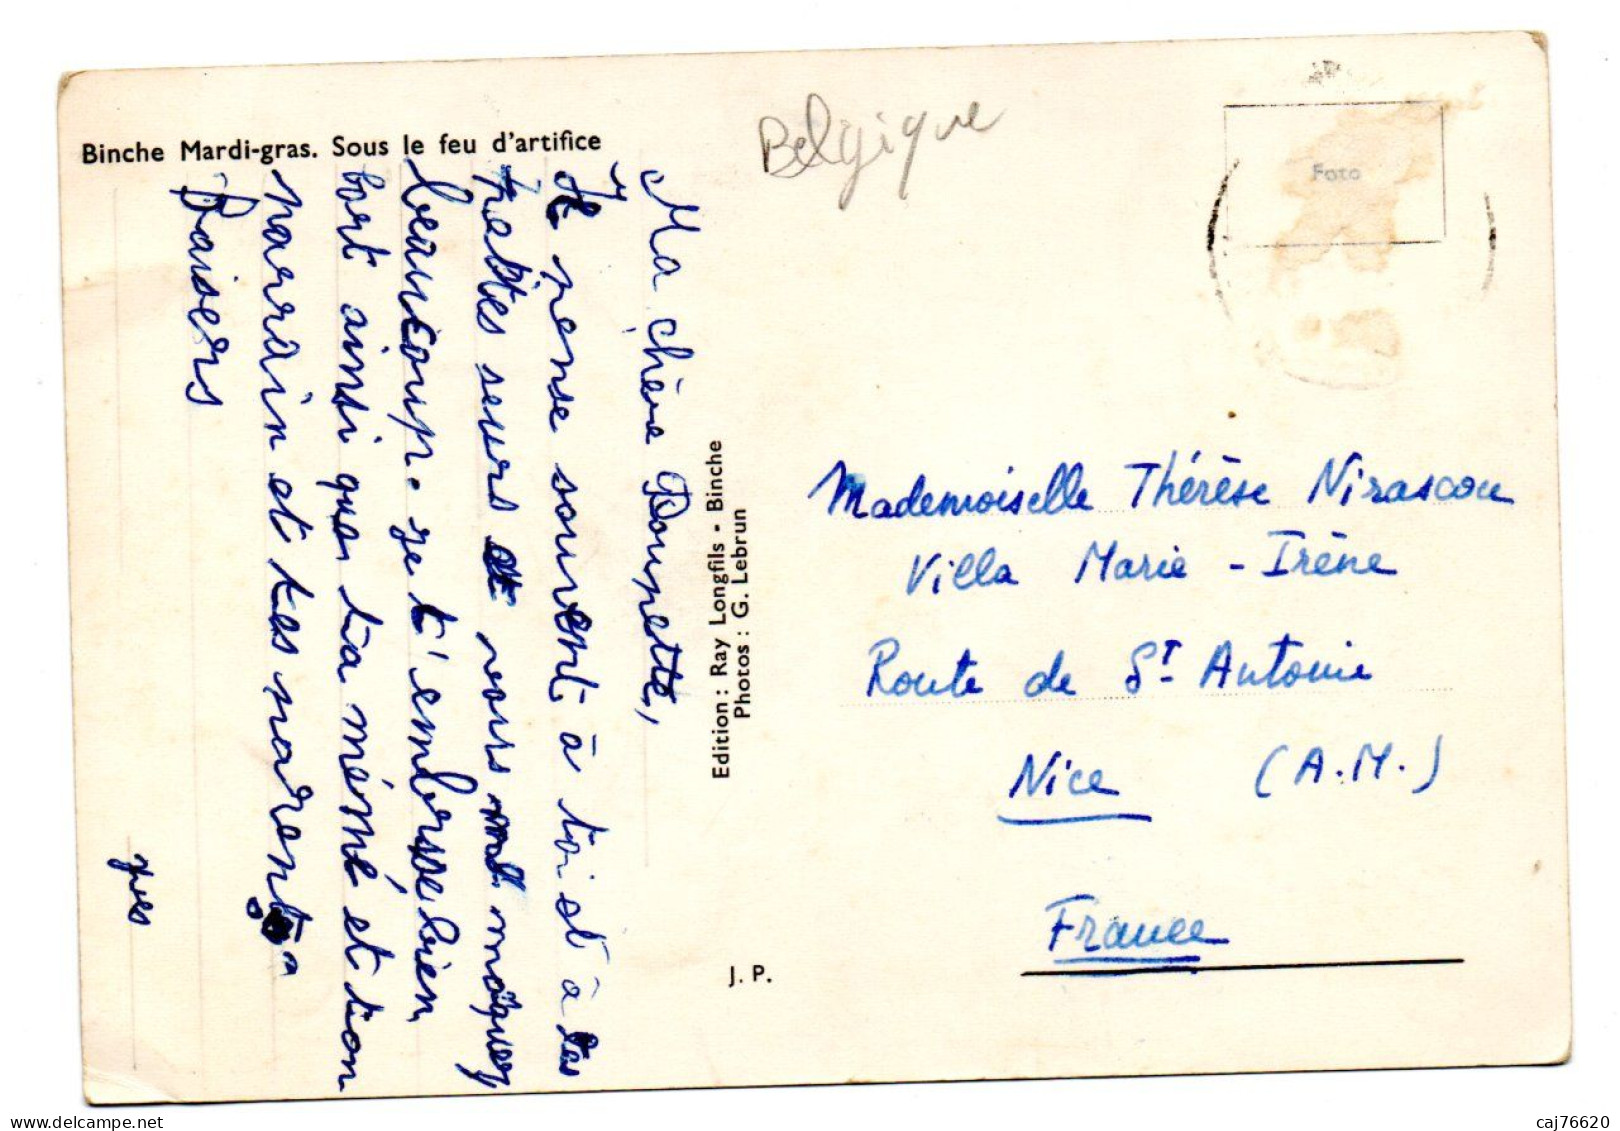 Binche Mardi-gras. Sous le feu d'artifice
Belgique
Foto
Ma chère Poupette,
Je pense souvent à toi et à tes
petites seurs et vous manquez
beaucoup. Je t'embrsse bien
fort ainsi que ta mémé et tion
parrain et tes parents
Baisers
yves
Edition : Ray Longfils - Binche
Photos : G. Lebrun
J. P.
Mademoiselle Thérèse Nirascou
Villa Marie - Irène
Route de St Antoine
Nice (A.M.)
France
caj76620